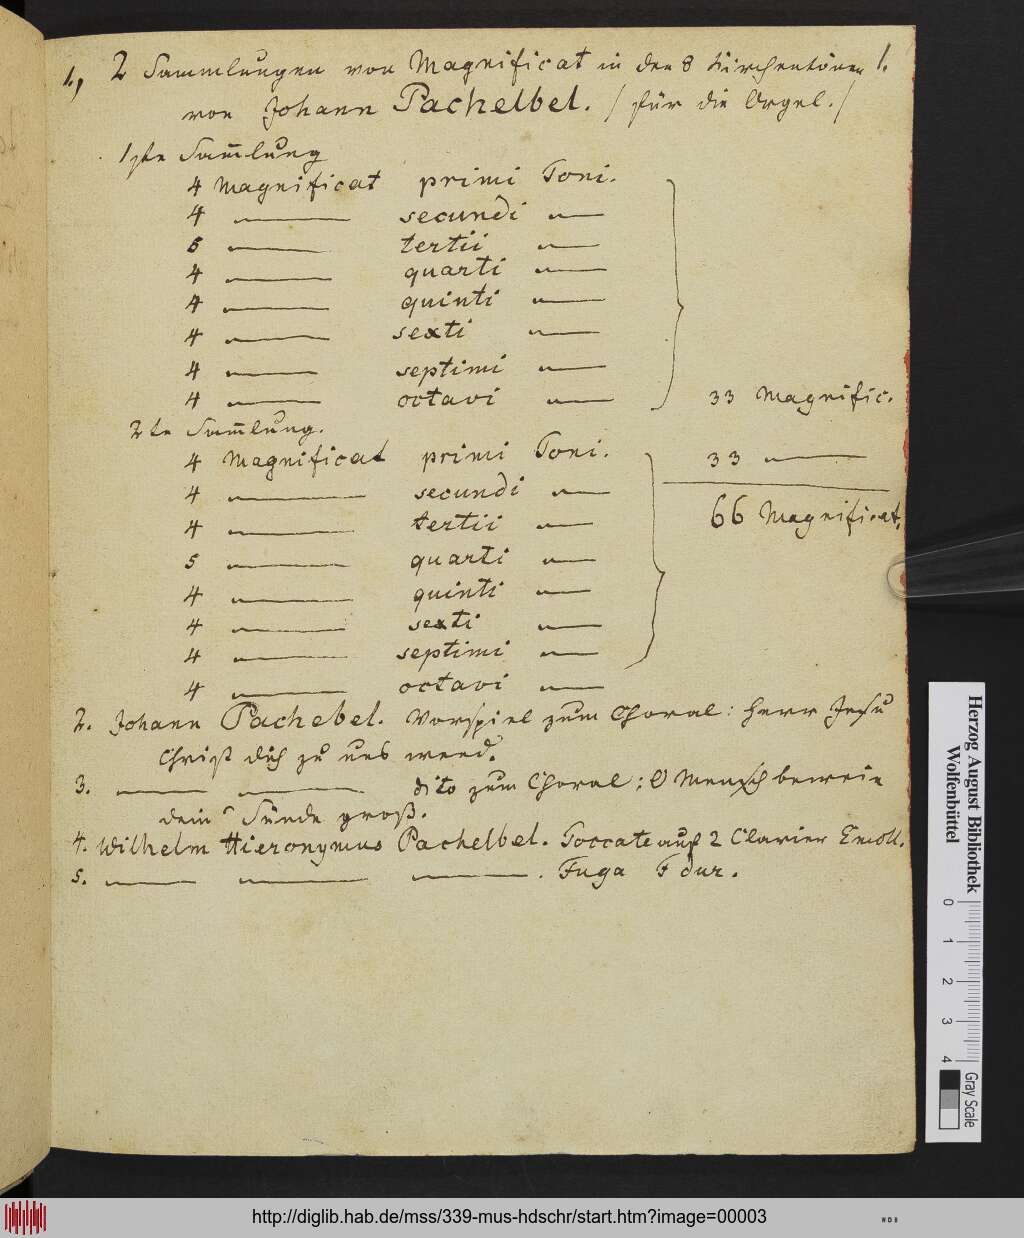 1., 2 Sammlungen von Magnificat in den 8 Kirchentönen 1.
von Johann Pachelbel. / für die Orgel. /
1ste Sam̄lung
4 Magnificat primi Toni.
4 — secundi —
5 — tertii —
4 — quarti —
4 — quinti —
4 — sexti —
4 — septimi —
4 — octavi — 33 Magnific.
2te Sam̄lung.
4 Magnificat primi Toni. 33 —
4 — secundi —
4 — tertii — 66 Magnificat,
5 — quarti —
4 — quinti —
4 — sexti —
4 — septimi —
4 — octavi —
2. Johann Pachebel. Vorspiel zum Choral: Herr Jesu
Christ dich zu uns wend.
3. — — dito zum Choral: O Mensch bewein
dein Sünde groß.
4. Wilhelm Hieronymus Pachelbel. Toccate auf 2 Clavier E moll.
5. — — — . Fuga F dur.
Herzog August Bibliothek
Wolfenbüttel
0 1 2 3 4
Gray Scale
http://diglib.hab.de/mss/339-mus-hdschr/start.htm?image=00003